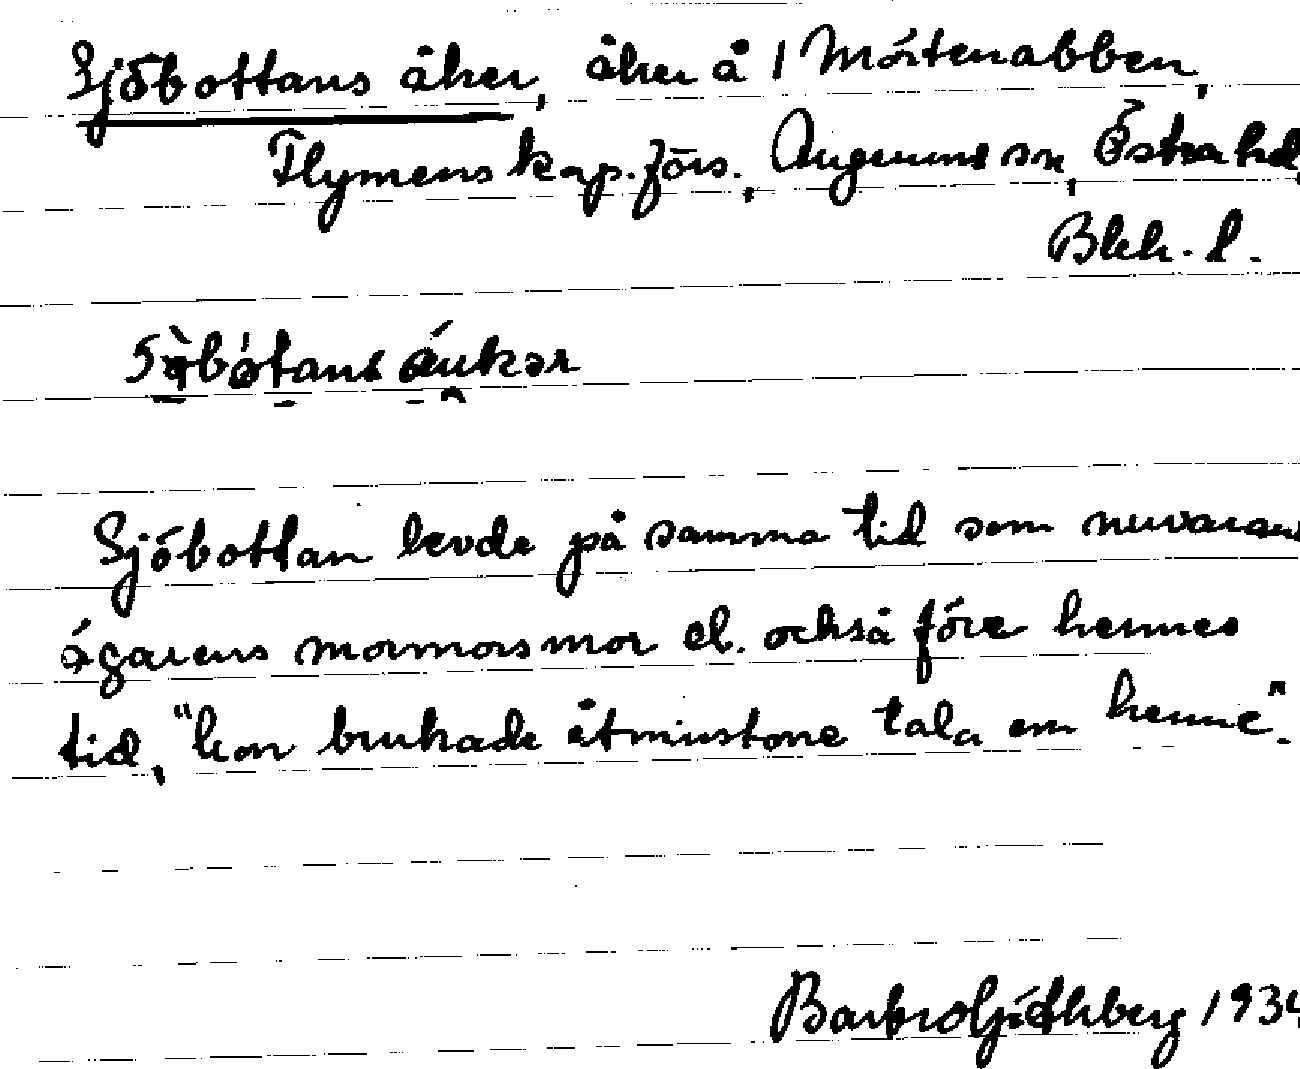 Sjöbottans åker, åker å 1 Mörtenabben,
Flymens kap.förs., Augerums sn, Östra hd,
Blek. l.
Sjöbottan levde på samma tid som nuvarand
ägarens mormorsmor el. också före hennes
tid, "hon brukade åtminstone tala om henne".
Barbro 1934